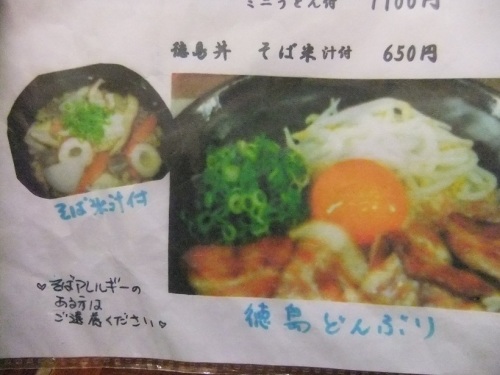 ミニうどん付 1100円
徳島丼 そば米汁付 650円
そば米汁付
♥そばアレルギーの
ある方は
ご遠慮ください♥
徳島どんぶり